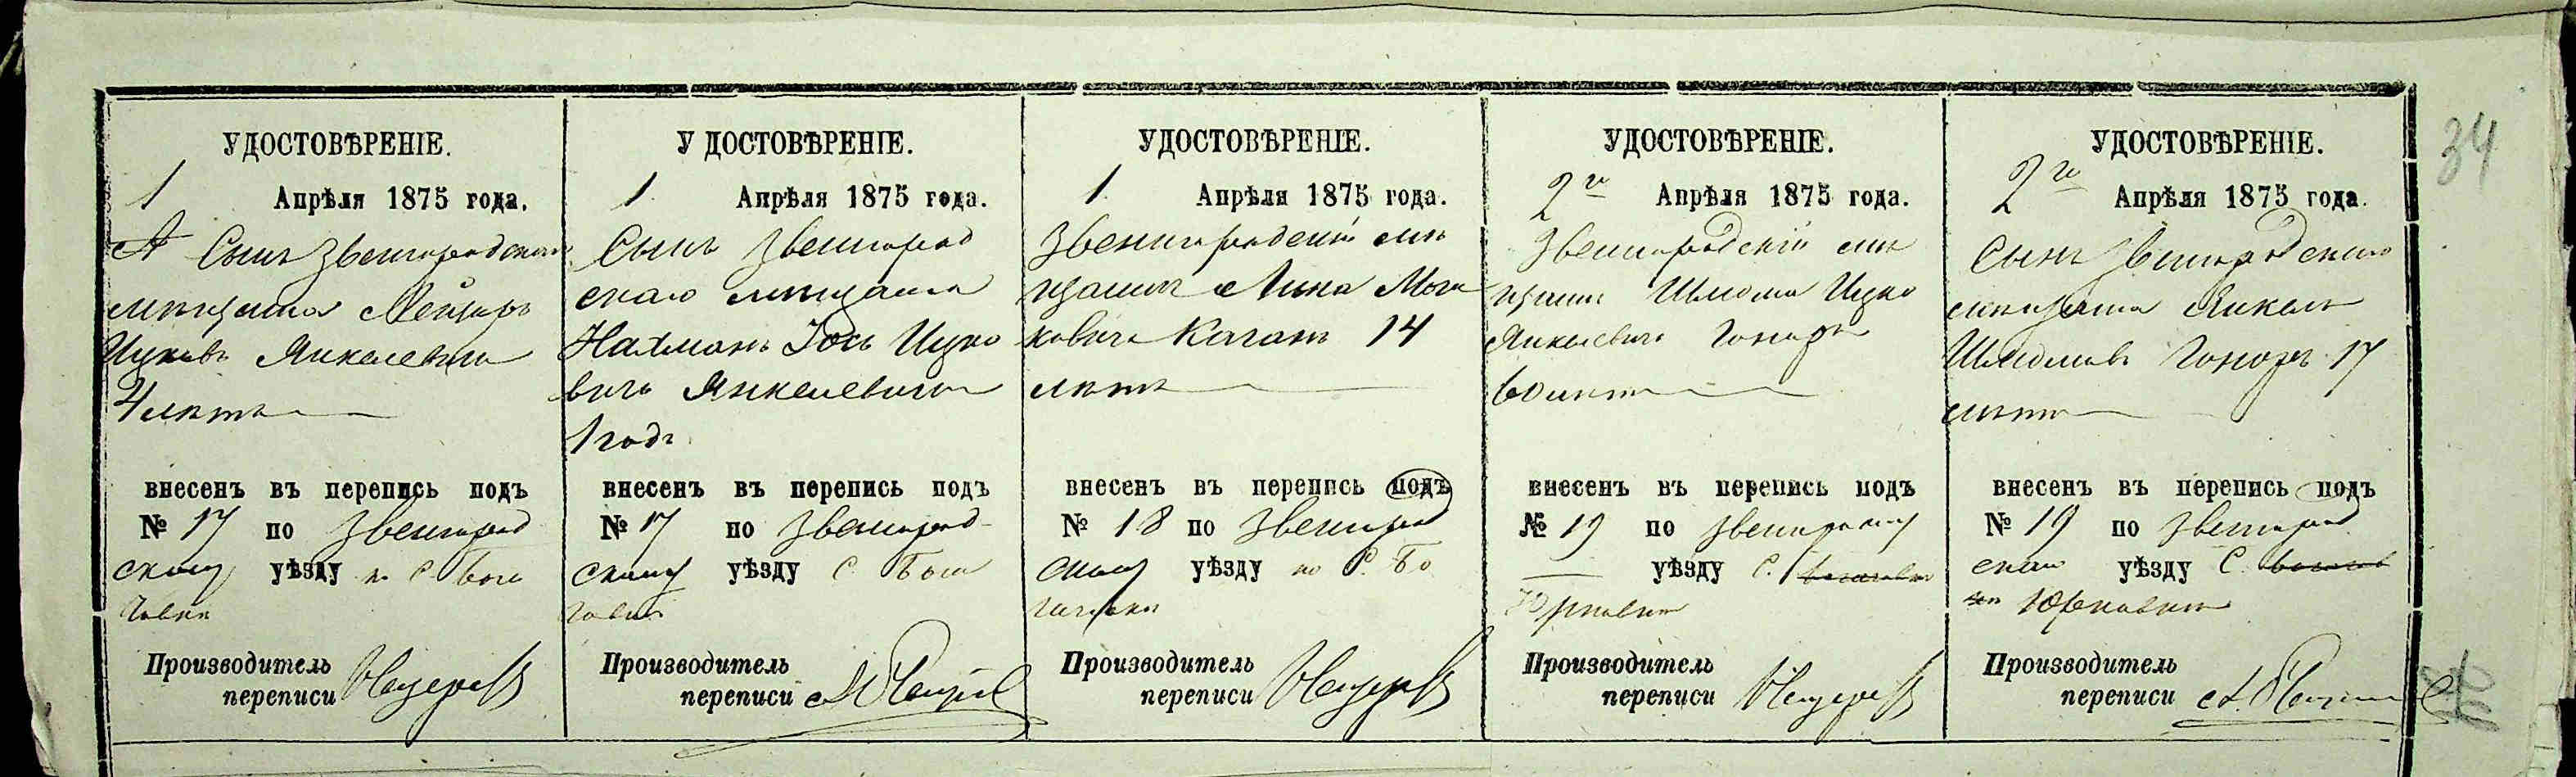 34
УДОСТОВѢРЕНІЕ.
1 Апрѣля 1875 года.
Сынъ Звенигородскаго
мѣщанина Мейеръ
Ицковъ Янкелевичъ
4 лѣтъ
внесенъ въ перепись подъ
№ 17 по Звенигород
скому уѣзду
Производитель
переписи
У ДОСТОВѢРЕНІЕ.
1. Апрѣля 1875 года.
Сынъ Звенигород
скаго мѣщанина
Нахманъ Іось Ицко
вичъ Янкелевичъ
1 годъ
внесенъ въ перепись подъ
№ 17 по Звенигород-
скому уѣзду С.
Производитель
переписи
УДОСТОВѢРЕНІЕ.
1. Апрѣля 1875 года.
Звенигородскій мѣ
щанинъ Мош
ковичъ Каганъ 14
лѣтъ
внесенъ въ перепись подъ
№ 18 по Звенигород
скому уѣзду по С. Бо
Производитель
переписи
УДОСТОВѢРЕНІЕ.
2го Апрѣля 1875 года.
Звенигородскій мѣ
щанинъ Шлиома Ицко
Янкелевичъ Гоноръ
60 лѣтъ
внесенъ въ перепись подъ
№ 19 по Звенигородскому
уѣзду С.
Юрковки
Производитель
переписи
УДОСТОВѢРЕНІЕ.
2го Апрѣля 1875 года.
Сынъ Звенигородскаго
мѣщанина Янкель
Шлиомовъ Гоноръ 17
лѣтъ
внесенъ въ перепись подъ
№ 19 по Звенигород
скому уѣзду С.
Юрковки
Производитель
переписи